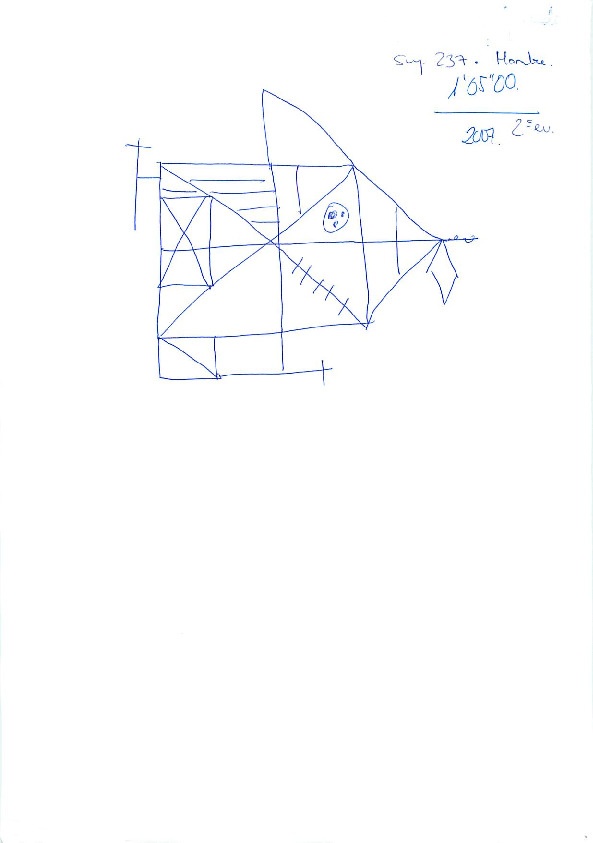 Suj. 237. Hombre.
1'05"00.
2007. 2ª ev.